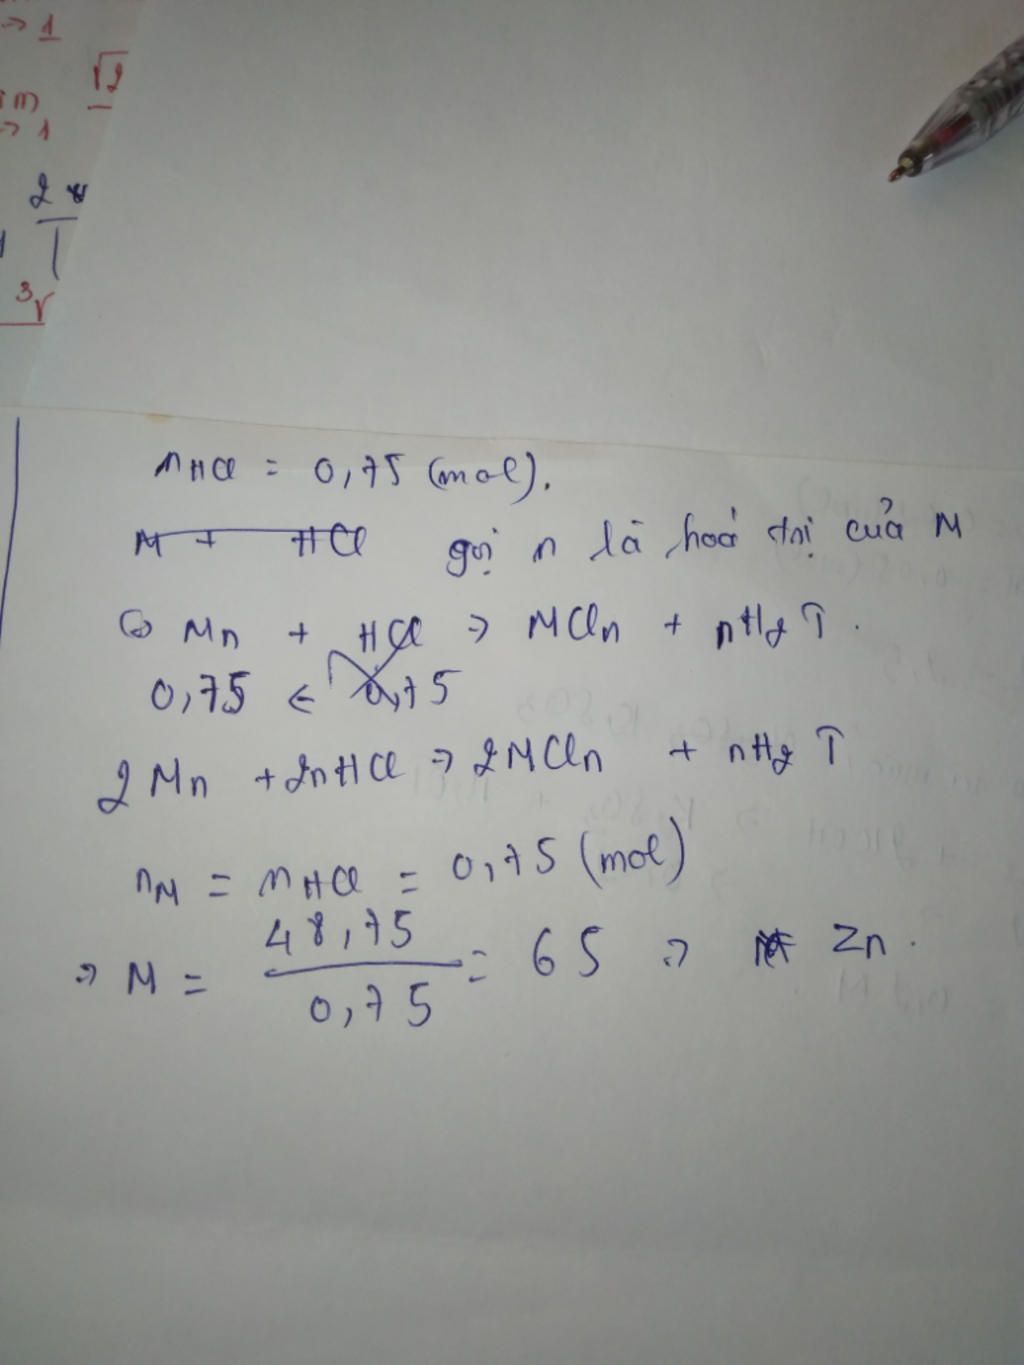 → 1
√2
→ 1
2
3
nHCl = 0,75 (mol).
M + HCl gọi n là hoá trị của M
Mn + HCl → MCln + nH2 ↑.
0,75 ← 0,75
2Mn + 2nHCl → 2MCln + nH2 ↑
nM = nHCl = 0,75 (mol)
⇒ M = 48,75 / 0,75 = 65 ⇒ Zn.